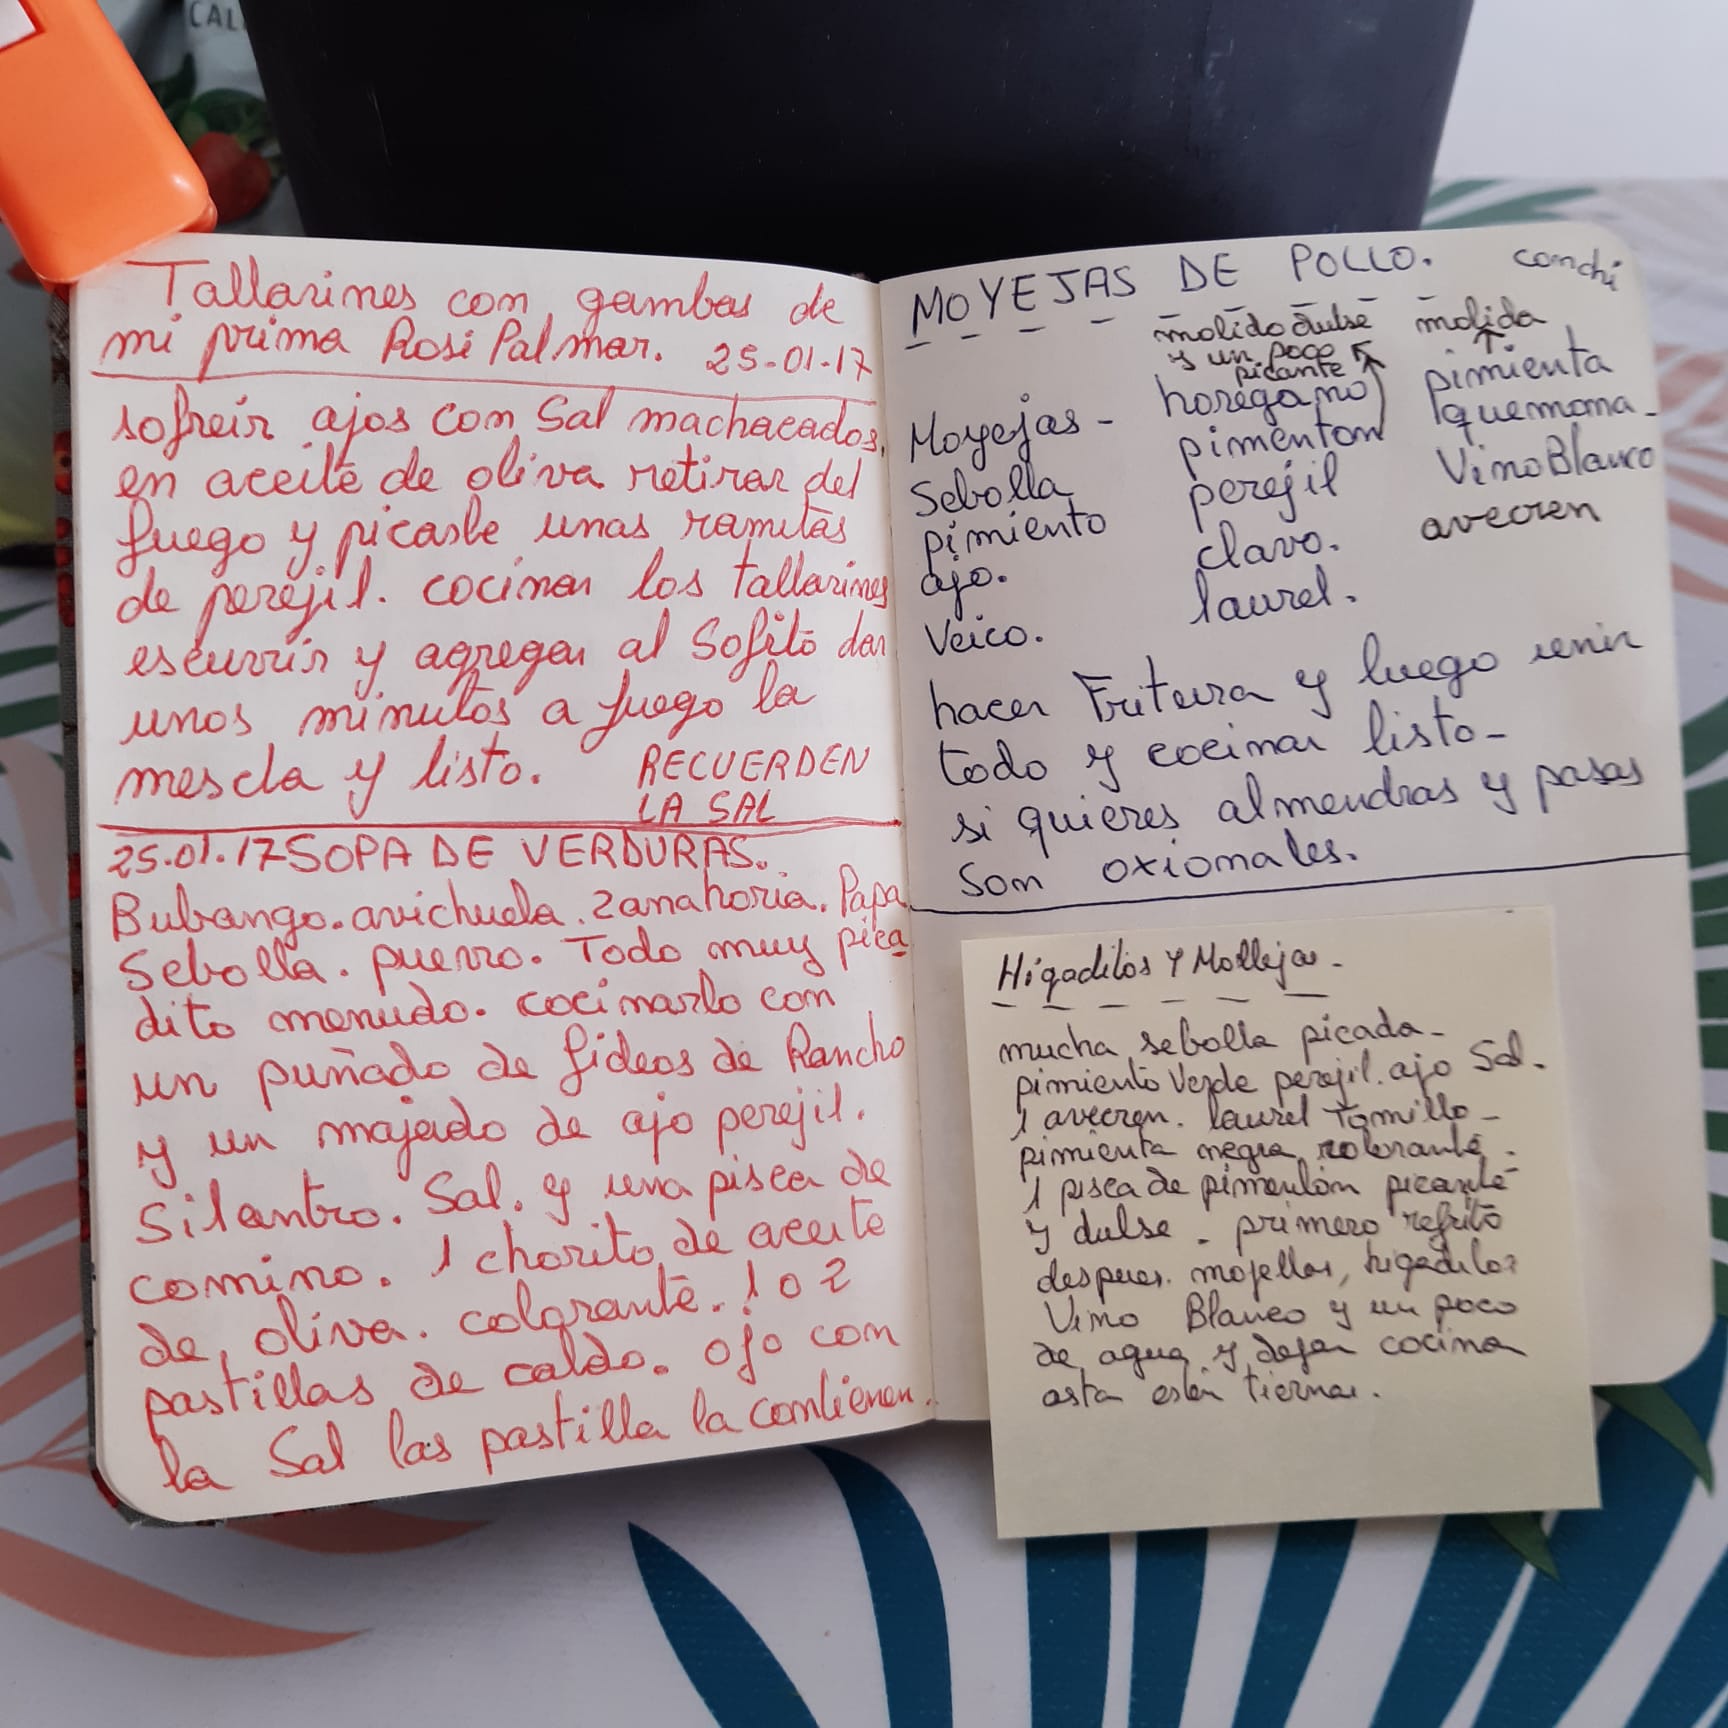 CAL
Tallarines con gambas de
mi prima Rosi Palmar. 25-01-17
sofreir ajos con Sal machacados,
en aceite de oliva retirar del
fuego y picarle unas ramitas
de perejil. cocinar los tallarines
escurrir y agregar al Sofito dar
unos minutos a fuego la
mescla y listo. RECUERDEN
LA SAL
25.01.17 SOPA DE VERDURAS.
Bubango. avichuela. Zanahoria. Papa
Sebolla. puerro. Todo muy pica
dito menudo. cocinarlo con
un puñado de fideos de Rancho
y un majado de ajo perejil.
Silantro. Sal. y una pisca de
comino. 1 chorito de aceite
de oliva. colorante. 1 o 2
pastillas de caldo. ojo con
la Sal las pastilla la contienen.
MOYEJAS DE POLLO. conchi
molido dulse molida
y un poco
picante
Moyejas - horegano pimienta
Sebolla pimenton quemona -
pimiento perejil Vino Blanco
ajo. clavo. avecren
Veico. laurel.
hacer Fritura y luego unir
todo y cocinar listo -
si quieres almendras y pasas
Son oxionales.
Higadilos Y Mollejas -
mucha sebolla picada -
pimiento Verde perejil. ajo Sal -
1 avecren. laurel Tomillo -
pimienta negra colorante -
1 pisca de pimentón picante
y dulse - primero refrito
despues. mojellas, higadilos
Vino Blanco y un poco
de agua y dejar cocinar
asta esten tiernas.